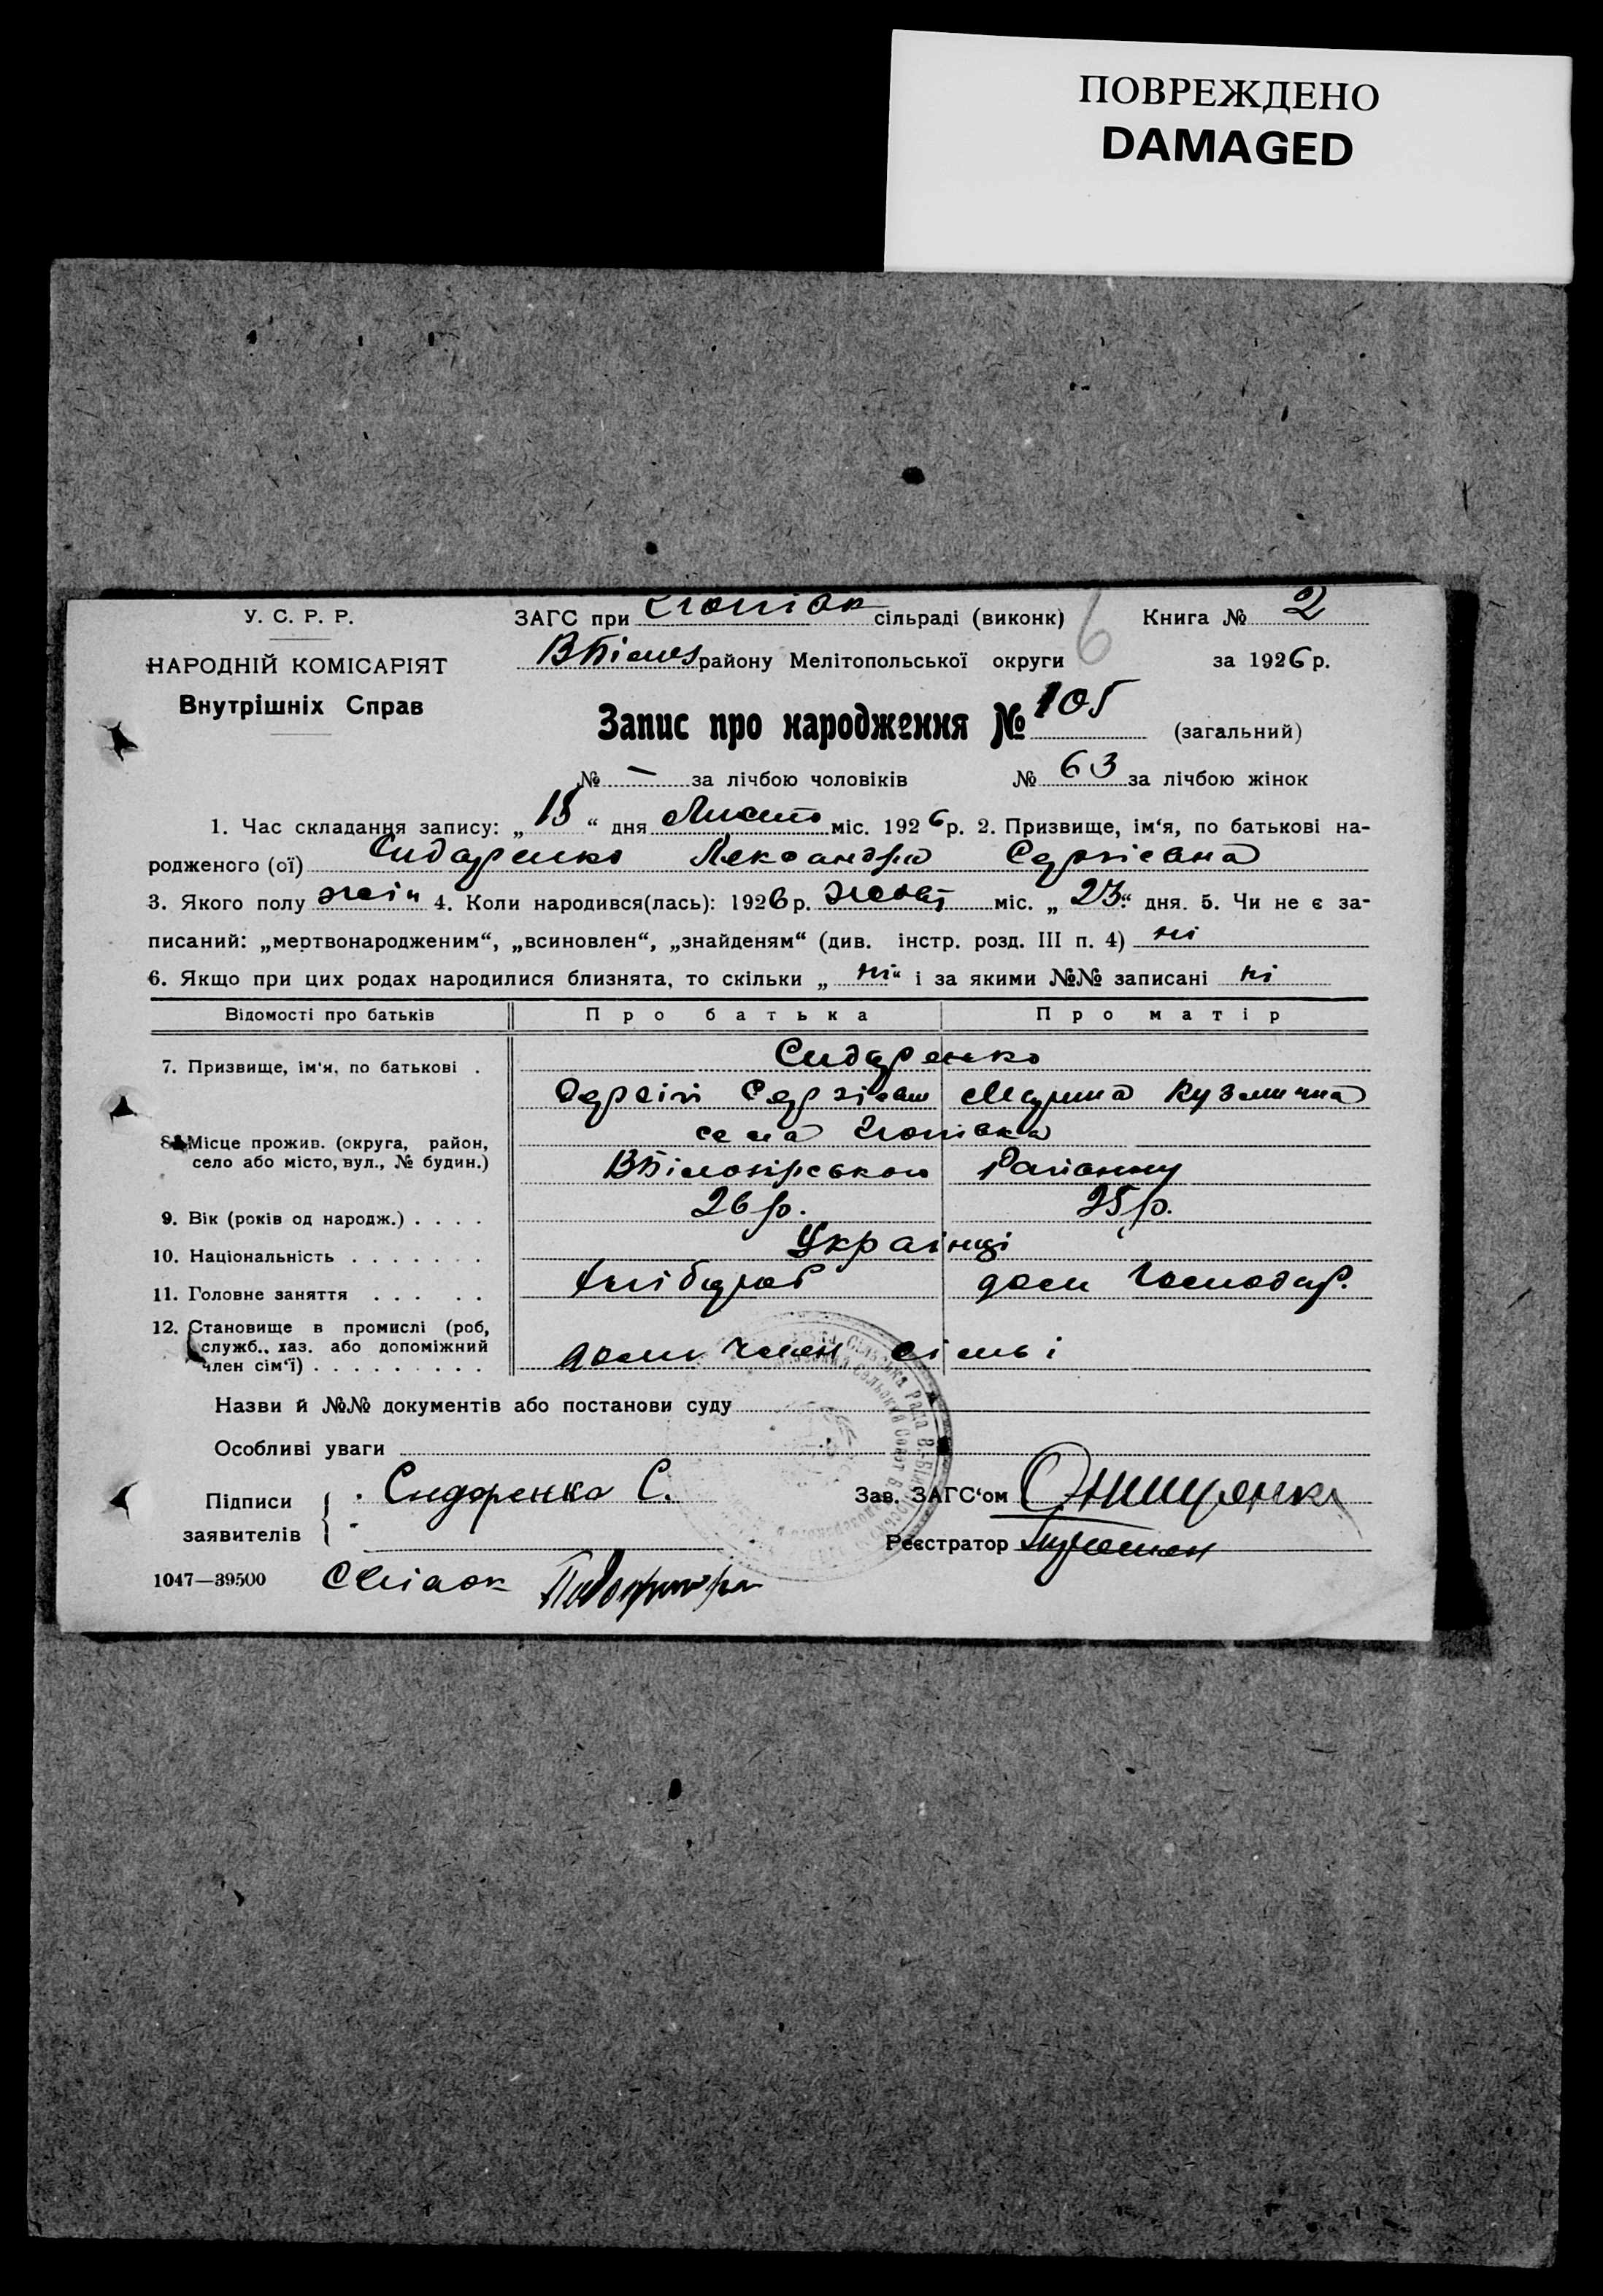 ПОВРЕЖДЕНО
DAMAGED
У. С. Р. Р.
НАРОДНІЙ КОМІСАРІЯТ
Внутрішніх Справ
ЗАГС при сільраді (виконк) Книга № 2
району Мелітопольської округи за 1926 р.
6
Запис про народження № 105 (загальний)
№ – за лічбою чоловіків № 63 за лічбою жінок
1. Час складання запису: „15“ дня Листо міс. 1926 р. 2. Призвище, ім‘я, по батькові на-
родженого (ої) Сидаренко Лександра Сергіевна
3. Якого полу жін 4. Коли народився(лась): 1926 р. Жовт міс. „23“ дня. 5. Чи не є за-
писаний: „мертвонародженим“, „всиновлен“, „знайденям“ (див. інстр. розд. III п. 4) ні
6. Якщо при цих родах народилися близнята, то скільки „ні“ і за якими №№ записані ні
Відомості про батьків Про батька Про матір
7. Призвище, ім‘я, по батькові . Сидаренко
Сергієв Марина Кузминична
8. Місце прожив. (округа, район,
село або місто, вул., № будин.)
села
ВБілозірського Району
9. Вік (років од народж.) . . . . 26 р. 25 р.
10. Національність . . . . . . . Українці
11. Головне заняття . . . . . Хлібороб дом господар.
12. Становище в промислі (роб,
служб., хаз. або допоміжний
член сім‘ї) . . . . . . . . . член сімьі
Назви й №№ документів або постанови суду
Особливі уваги
Підписи
заявителів
Сидоренко С.
Зав. ЗАГС‘ом Онищенко
Реєстратор
1047—39500 Свідок